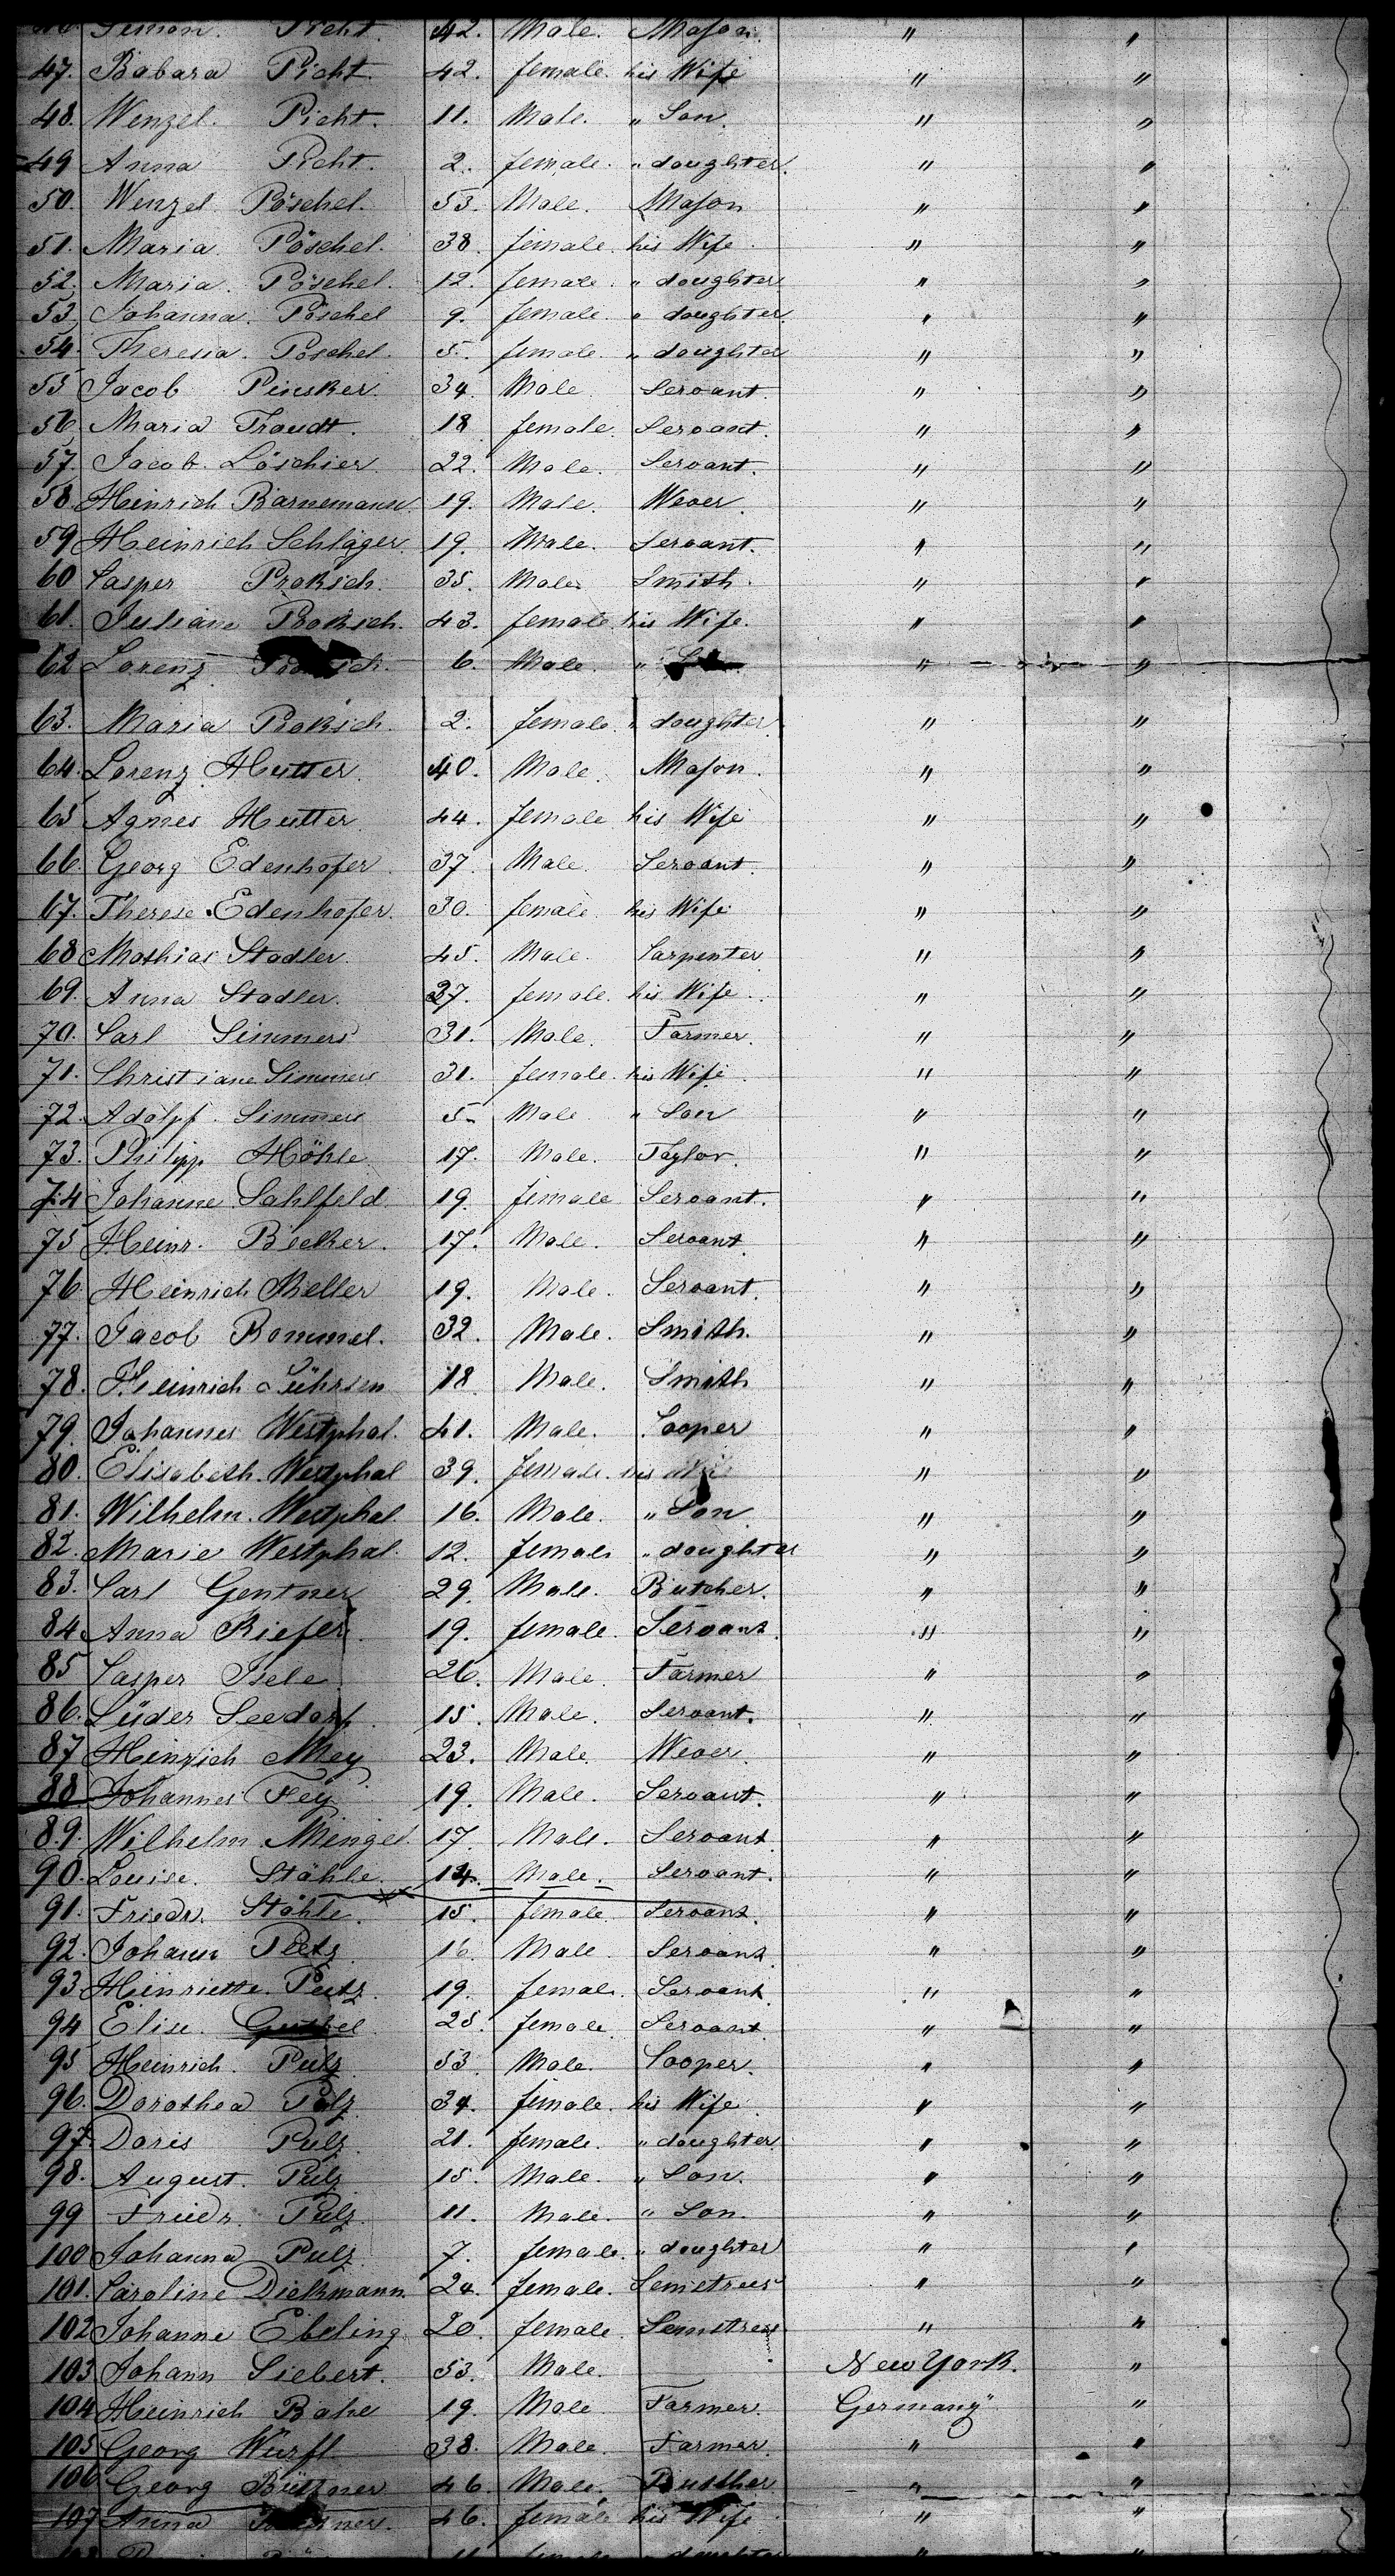 Simon Picht. 42. Male. Mason. " "
47. Babara Picht. 42. female. his Wife " "
48. Wenzel. Picht. 11. Male. " Son. " "
49 Anna Picht. 2. female. " doughter. " "
50. Wenzel Pöschel. 53. Male. Mason " "
51. Maria Pöschel. 38. female his Wife " "
52. Maria. Pöschel. 12. female. " doughter " "
53. Johanna. Pöschel 9. female. " doughter. " "
54. Theresia. Pöschel. 5. female. " doughter " "
55 Jacob Pinsker. 34. Male Servant. " "
56. Maria Traudt. 18 female. Servant. " "
57. Jacob. Löschier 22. Male. Servant. " "
58. Heinrich Barnemann. 19. Male. Wever. " "
59 Heinrich Schläger. 19. Male. Servant. " "
60 Casper Proksch. 35. Male Smith. " "
61. Juliane Proksch. 43. female his Wife. " "
62 Lorenz 6. Male. " " "
63. Maria Proksch. 2. female " doughter " "
64. Lorenz Hutter. 40. Male. Mason. " "
65 Agnes Hutter 44. female his Wife " "
66. Georg Edenhofer 37. Male. Servant. " "
67. Therese Edenhofer. 30. female his Wife " "
68 Mathias Stadler. 45. Male. Carpenter " "
69. Anna Stadler. 37. female. his Wife " "
70. Carl Simmers 31. Male. Farmer. " "
71. Christiane Simmers 31. female. his Wife " "
72. Adolpf. Simmers 5. Male " Son " "
73. Philipp Höhle 17. Male. Taylor. " "
74 Johanne Sahlfeld. 19. female Servant. " "
75 Heinr. Becker. 17. Male. Servant " "
76. Heinrich Meller 19. Male. Servant. " "
77. Jacob Rommel. 32. Male. Smith. " "
78. Heinrich Lührsen 18 Male. Smith " "
79. Johannes Westphal. 41. Male. Cooper " "
80. Elisabeth. Westphal 39. female. his " "
81. Wilhelm. Westphal 16. Male. " Son " "
82. Marie Westphal. 12. female " doughter " "
83. Carl Gentner 29. Male. Butcher. " "
84. Anna Kiefer. 19. female. Servant. " "
85 Casper Isele 26. Male. Farmer " "
86. Lüder Seedorf. 15. Male. Servant. " "
87 Heinrich Mey 23. Male. Wever. " "
88. Johannes Fey 19. Male. Servant. " "
89. Wilhelm Mengel. 17. Male. Servant " "
90. Louise. Stähle. 14. Male. Servant. " "
91. Friedr. Stähle. 15. female Servant. " "
92. Johann 16. Male. Servant " "
93. Henriette 19. female. Servant. " "
94 Elise. 25. female. Servant. " "
95 Heinrich. Pulz. 53 Male. Cooper. " "
96. Dorothea Pulz. 34. female. his Wife " "
97. Doris Pulz. 21. female. " doughter. " "
98. August. Pulz 15. Male. " Son. " "
99 Friedr. Pulz. 11. Male. " Son. " "
100 Johanna Pulz. 7. female. " doughter " "
101. Caroline Diekmann. 24. female. Semstrees " "
102 Johanne Ebeling. 20. female Semstrees " "
103 Johann Siebert. 53. Male. New York. "
104 Heinrich Bahe 19. Male Farmer. Germany "
105 Georg Würfl 38. Male. Farmer. " "
106 Georg Büttner 46. Male. Butther " "
107 Anna 46. female his Wife " "